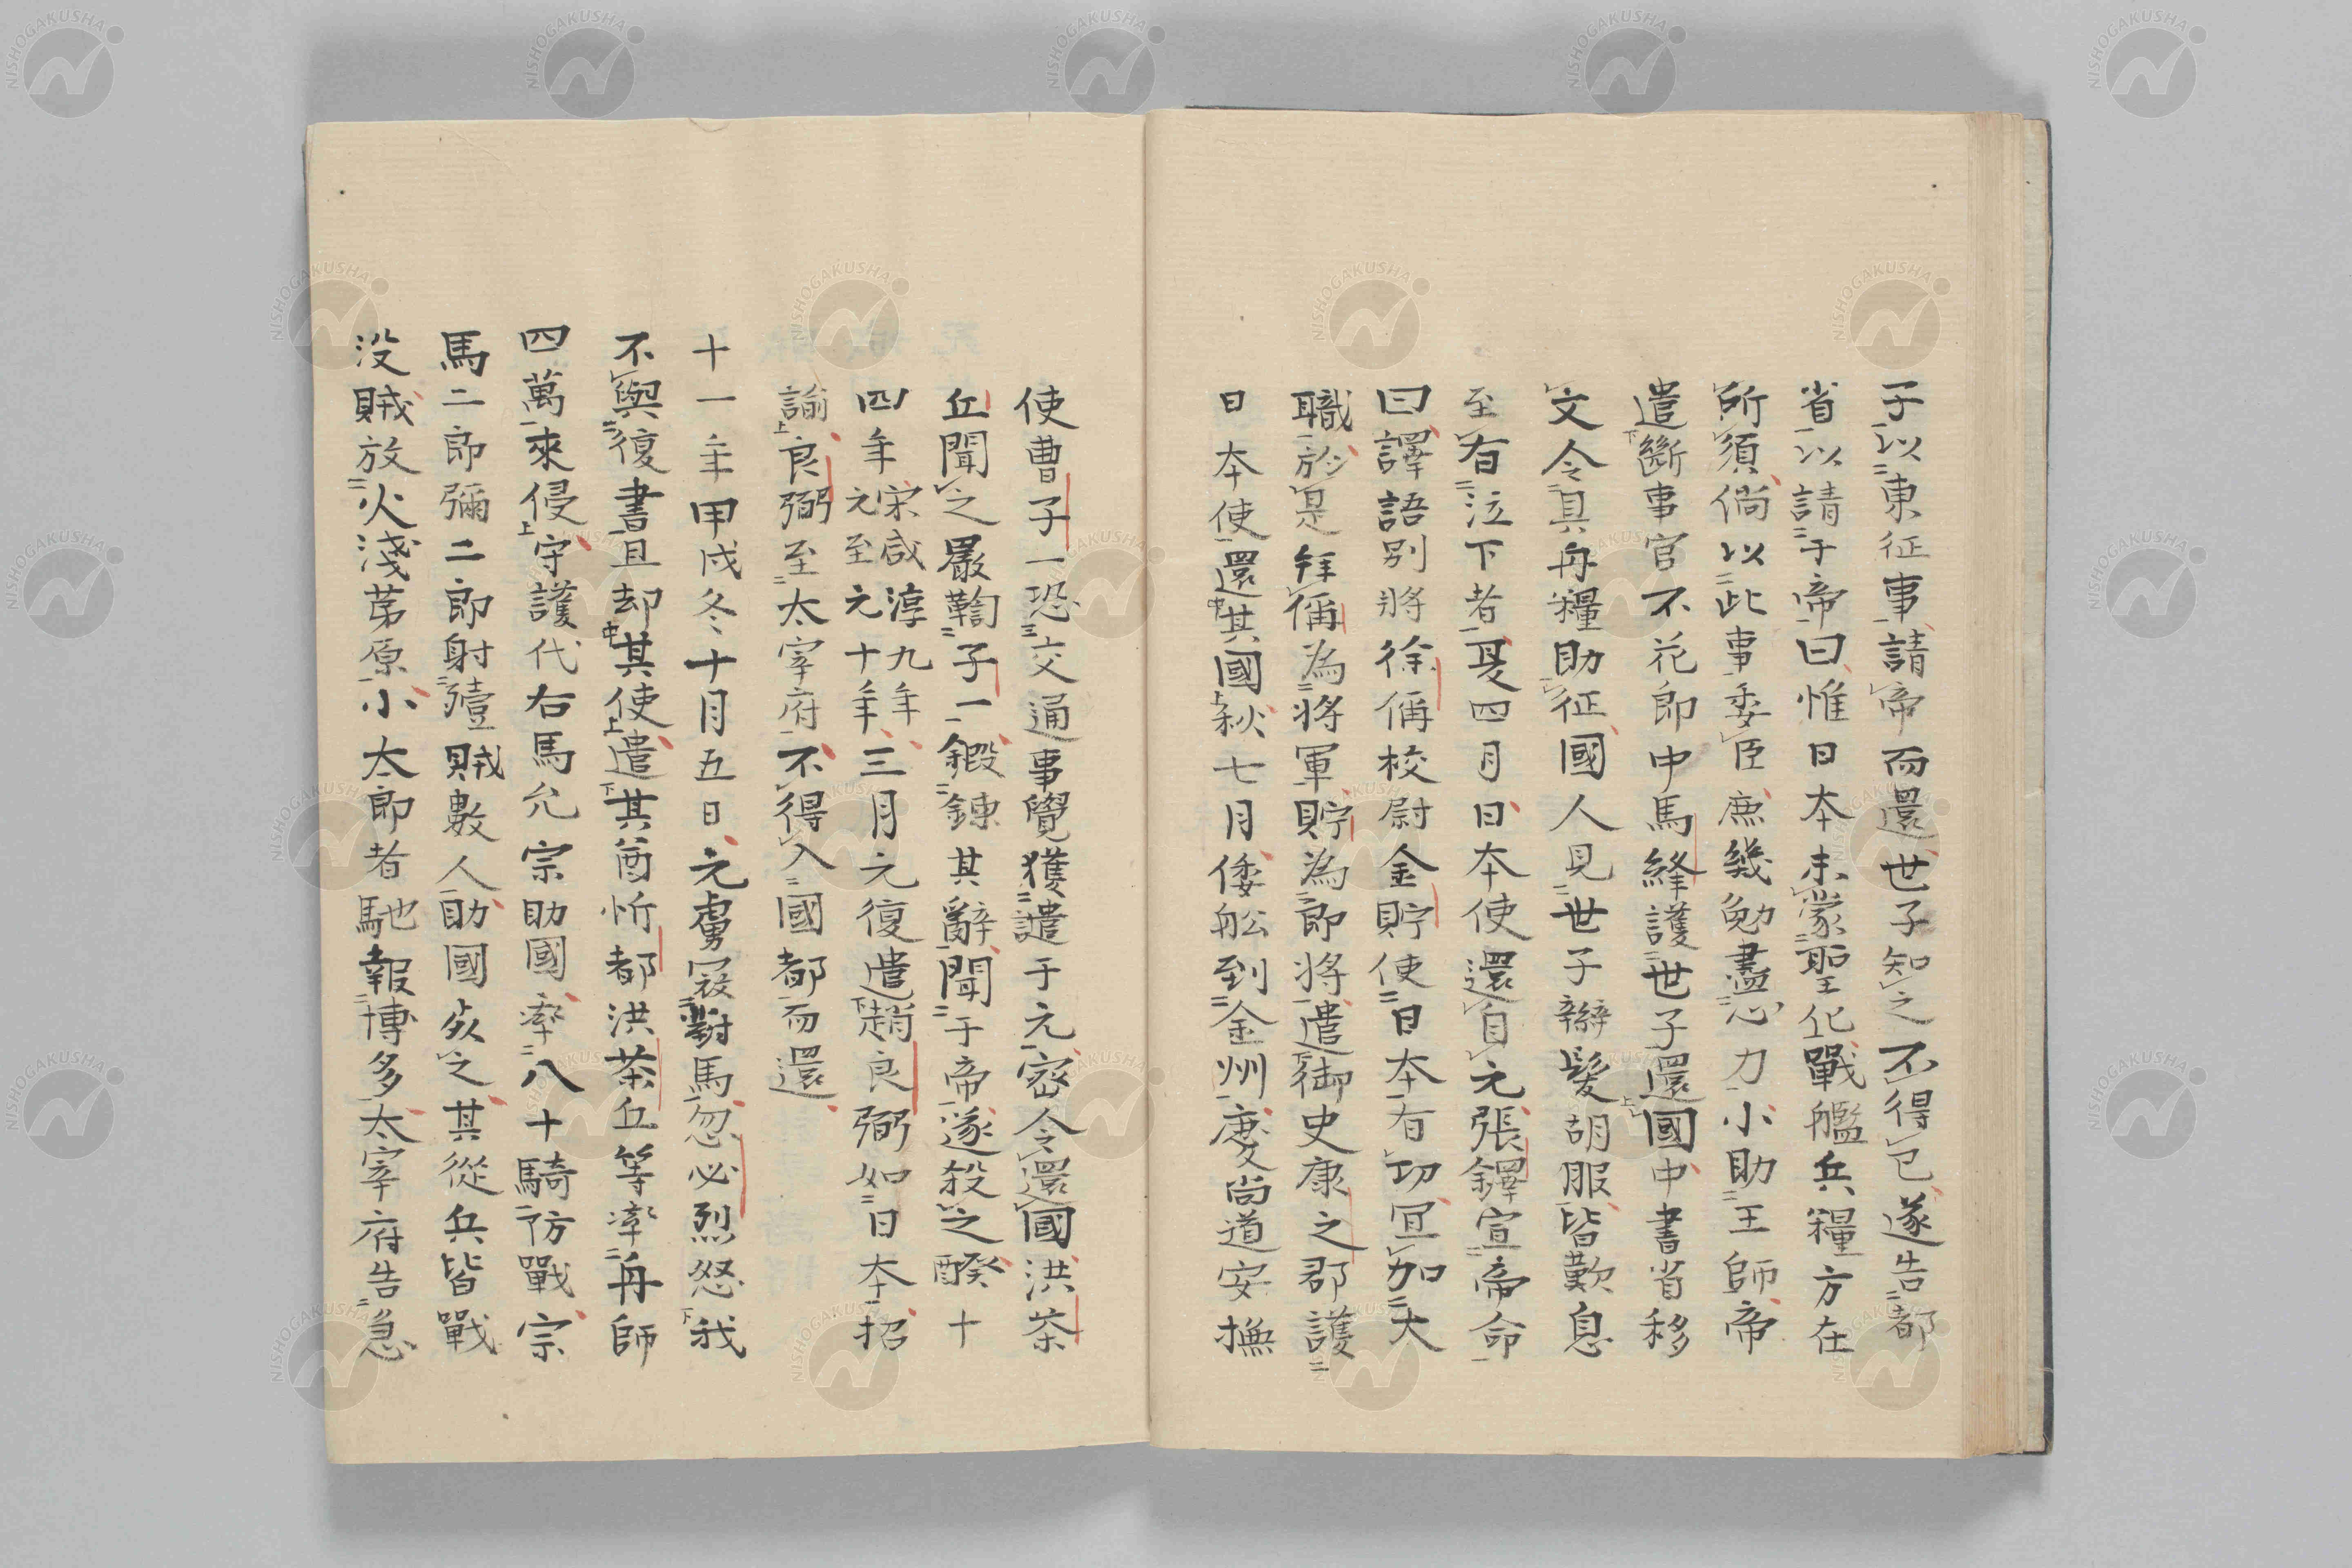 子以東征事請帝而還世子知之不得已遂告都
省以請于帝曰惟日本未蒙聖化戰艦兵糧方在
所須倘以此事委臣庶幾勉盡心力小助王師帝
遣斷事官不花郎中馬絳護世子還國中書省移
文令具舟糧助征國人見世子辮髮胡服皆歎息
至有泣下者夏四月日本使還自元張鐸宣帝命
曰譯語別將徐偁校尉金貯使日本有功宜加大
職於是拜偁為將軍貯為郎將遣御史康之邵護
日本使還其國秋七月倭舩到金州慶尚道安撫
使曹子一恐交通事覺獲譴于元密令還國洪茶
丘聞之嚴鞫子一鍛鍊其辭聞于帝遂殺之睽十
四年宋咸淳九年元至元十年三月元復遣趙良弼如日本招
諭良弼至太宰府不得入國都而還
十一年甲戌冬十月五日元虜寇對馬忽必烈怒我
不與復書且却其使遣其酋忻都洪茶丘等率舟師
四萬來侵守護代右馬允宗助國率八十騎防戰宗
馬二郎彌二郎射殪賊數人助國死之其從兵皆戰
没賊放火淺茅原小太郎者馳報博多太宰府告急
NISHOGAKUSHA